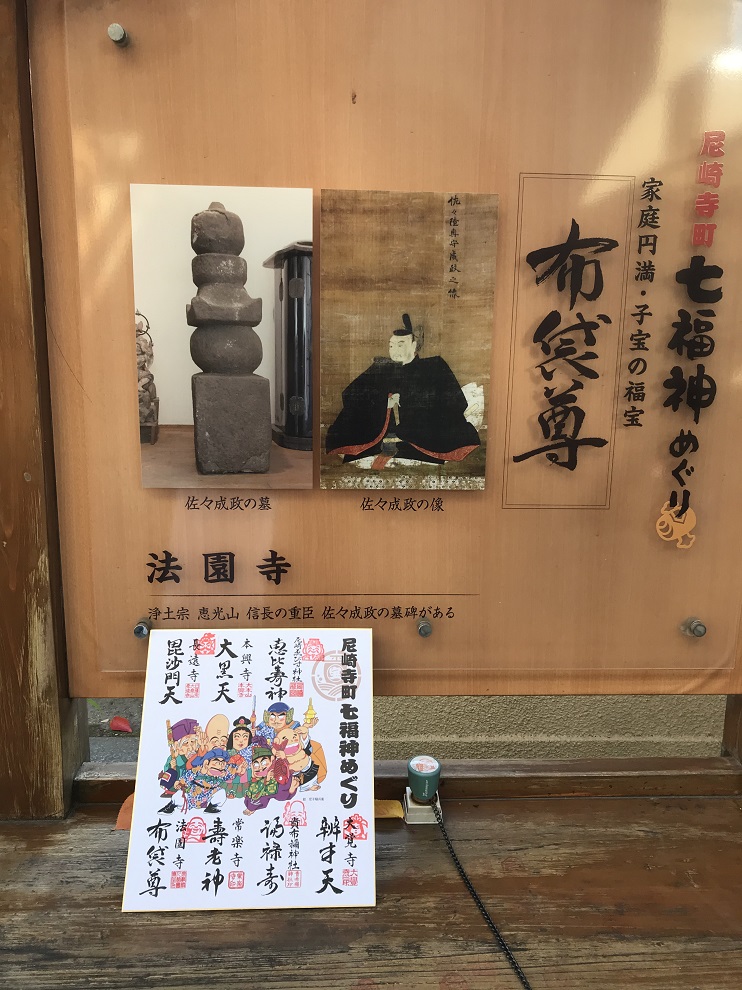 尼崎寺町
七福神めぐり
家庭円満・子宝の福宝
布袋尊
佐々成政の墓
佐々成政の像
法園寺
浄土宗 恵光山 信長の重臣 佐々成政の墓碑がある
尼崎寺町
七福神めぐり
尼崎えびす神社
恵比寿神
本興寺
大黒天
長遠寺
毘沙門天
大覚寺
辨才天
貴布禰神社
福禄寿
常楽寺
壽老神
法園寺
布袋尊